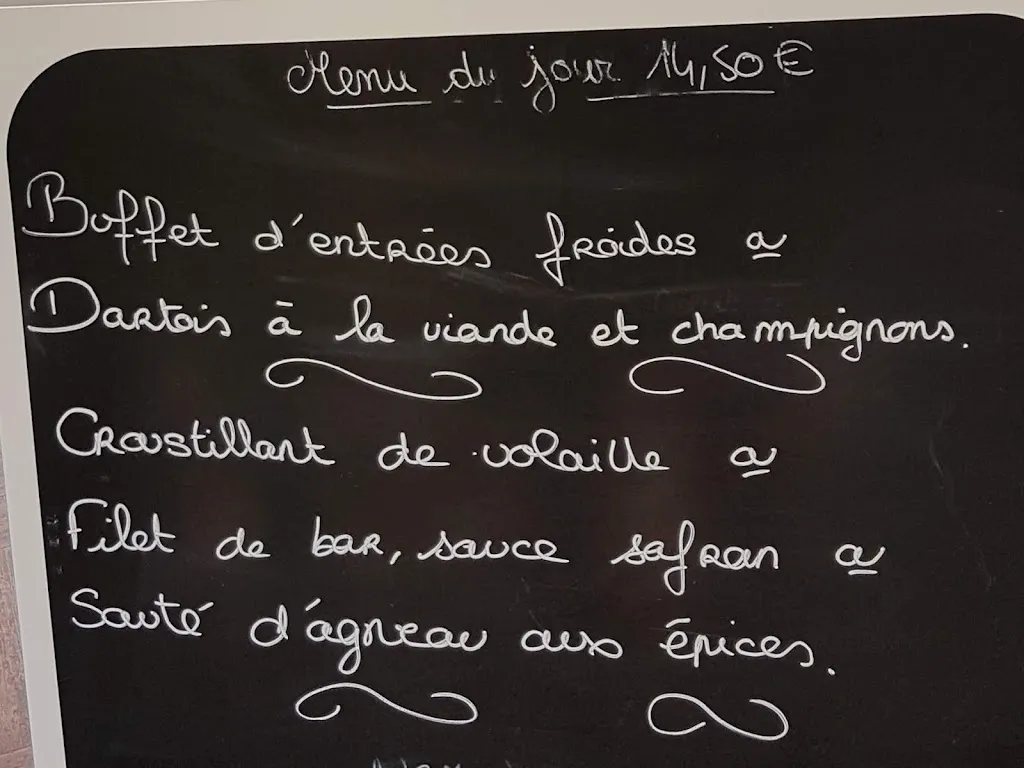 Menu du jour 14,50€
Buffet d'entrées froides ou
Dartois à la viande et champignons.
Croustillant de volaille ou
Filet de bar, sauce safran ou
Sauté d'agneau aux épices.